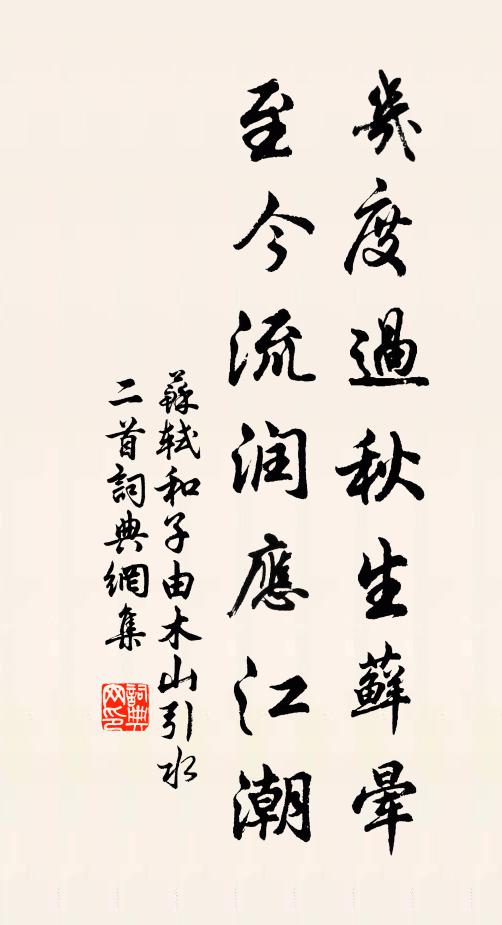 幾度過秋生蘚暈
至今流润應江潮
蘇軾和子由木山引水
二首詞典網集
詞典网印